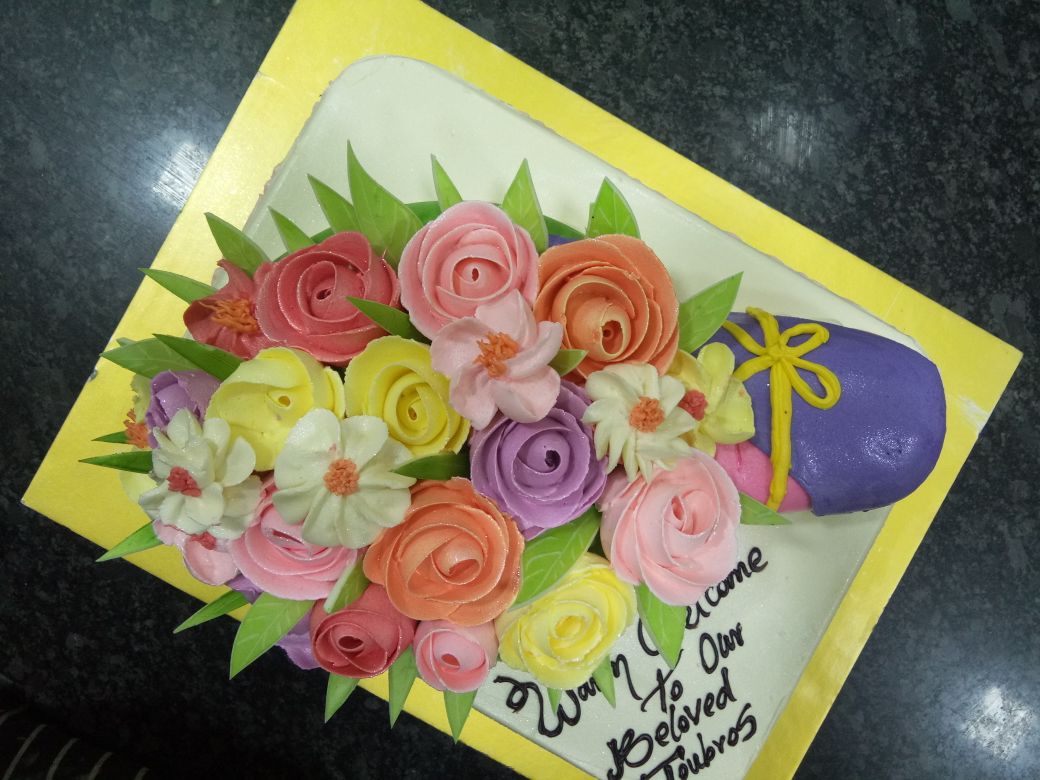 Warm Welcome
to Our
Beloved
Toubros